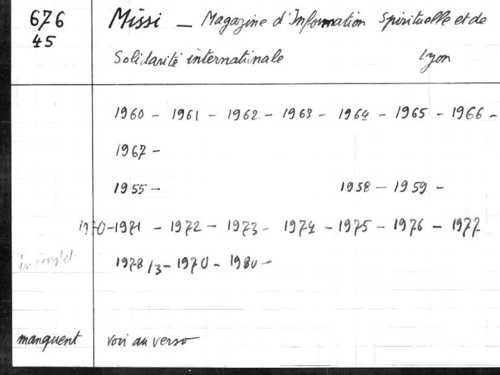 676 Missi - Magazine d'Information Spirituelle et de
45 Solidarité internatinale Lyon
1960 - 1961 - 1962 - 1963 - 1964 - 1965 - 1966 -
1967 -
1955 - 1958 - 1959 -
1970-1971 - 1972 - 1973 - 1974 - 1975 - 1976 - 1977
1978/3 - 1970 - 1980 -
manquent voir au verso